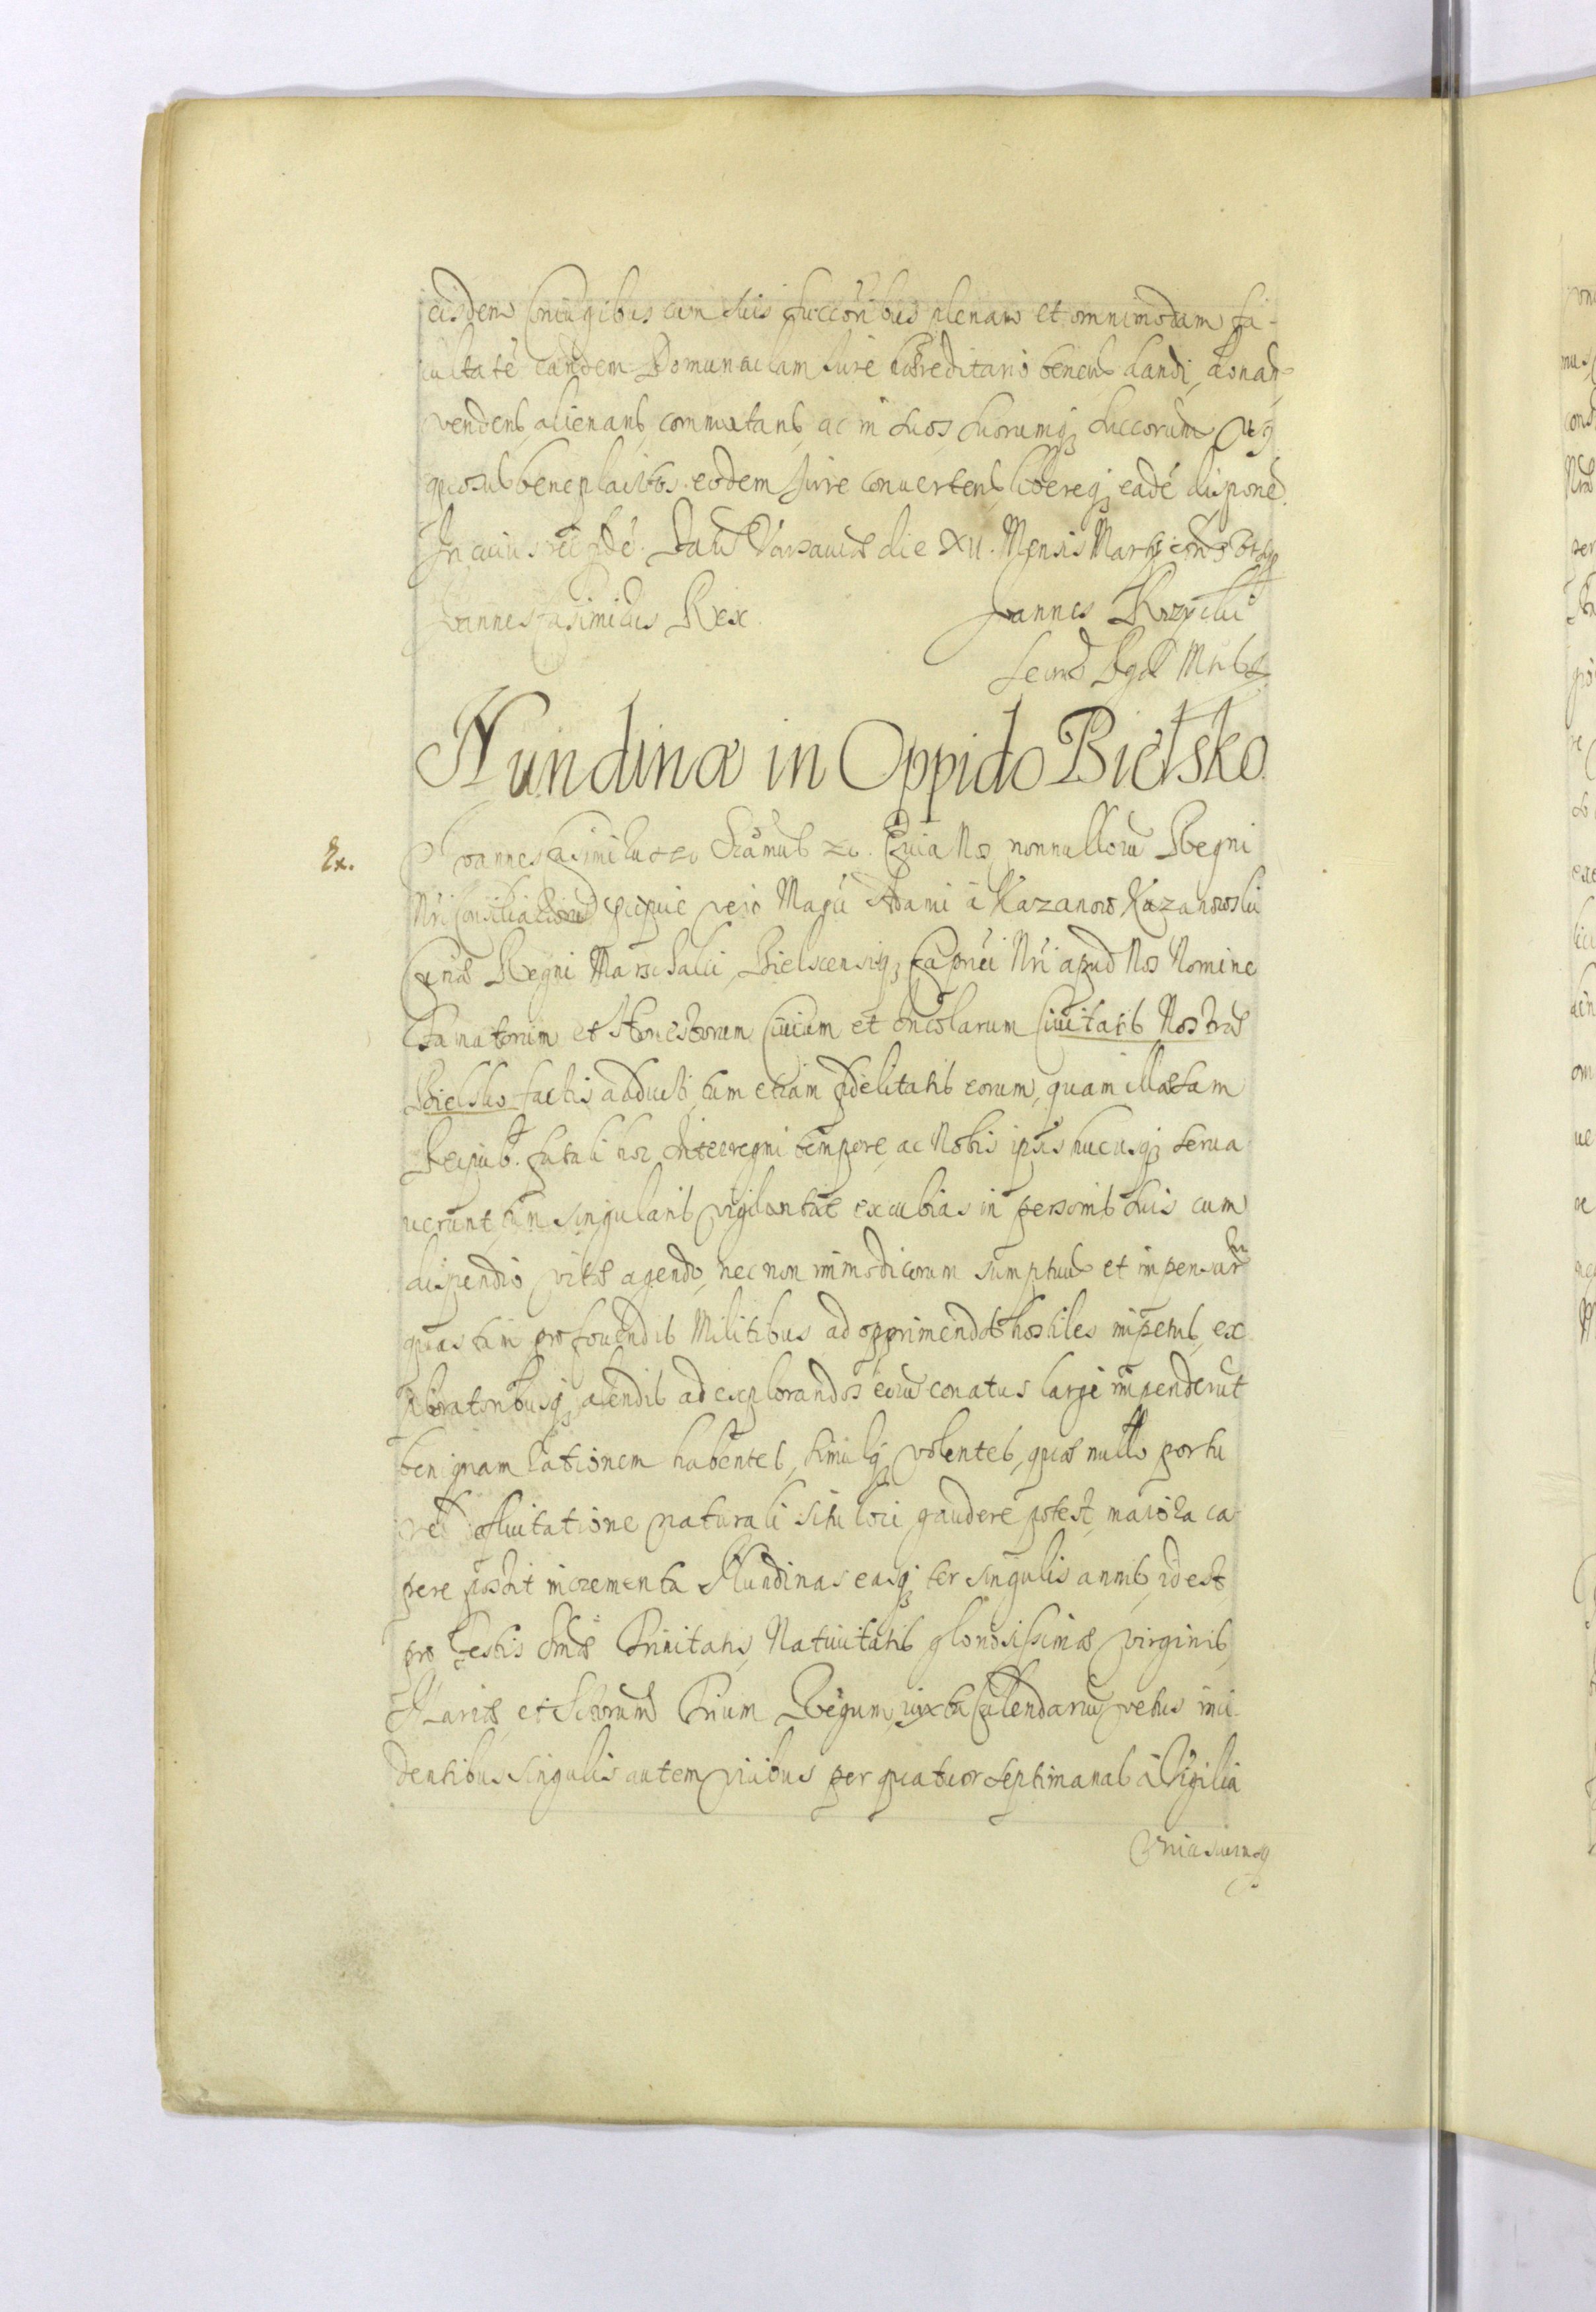 eisdem Coniugibus cum suis succoribus plenam et omnimodam fa-
cultatē eandem Domunculam iure haereditario tenend. dandi, donan-
vendend, alienand, commutand, ac in suos suorumq; succorum
beneplacitos eodem iure convertend, libereq; eadē disponē.
In cuius rei fidē. Datū Varsaviae die XII. Mensis Martij
Joannes Casimirus Rex. Joannes Krzycki
Secrius
Nundinæ in Oppido Bielsko
Ex.
Joannes Casimirus Quia Nos nonnullorū Regni
Nri Consiliariorū præcipuè vero Magci Adami à Kazanow Kazanowski
Curiæ Regni Marschalci, Bielscensisq; Capnei Nri apud Nos Nomine
Famatorum et Honestorum Civium et Incolarum Civitatis Nostræ
Bielsko factis adducti, tum etiam fidelitatis eorum, quam illæsam
Reipub. fatali hoc Interregni tempore, ac Nobis ipsis hucusq; serva
verunt, tùm singularis vigilantiæ excubias in personis suis cum
dispendio vitæ agendo, nec non immodicorum sumptuū et impensarū
quas tùm pro fovendis Militibus ad opprimendos hostiles impetus, ex
ploratoribusq; alendis ad explorandos eorū conatus largè impenderūt
benignam rationem habentes, simulq; volentes, quæ nullo portu
vel fluitatione naturali situ loci gaudere potest, maiora ca
pere possit incrementa Nundinas easq; ter singulis annis, id est,
pro Festis Smæ Trinitatis, Nativitatis gloriosissimæ Virginis
Mariæ et Sctorum Trium Regum, iuxta Calendariū vetus inci
dentibus singulis autem vicibus per quatuor septimanas à Vigilia